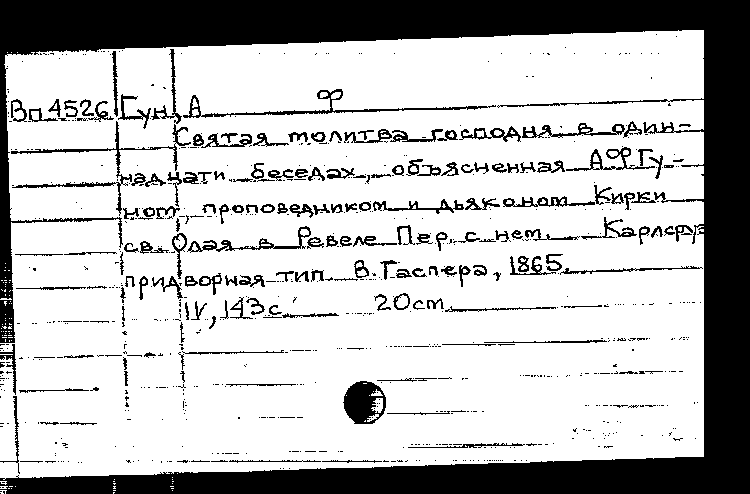 Вп 4526 Гун, А Ф
Святая молитва господня в один-
наднати беседах, объясненная А Ф Гу-
ном, проповедником и дьяконом Кирки
св. Олая в Ревеле Пер. с нем. Карлсруэ
придворная тип. В. Гаспера, 1865.
IV, 143 с. 20 cm.